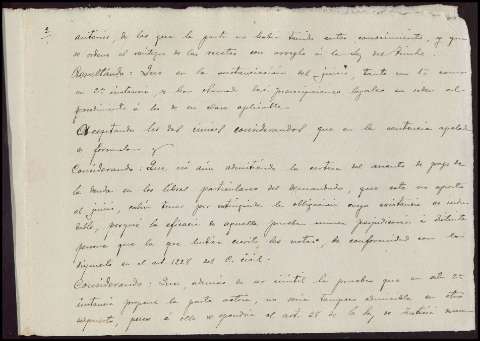 2
autos, de los que la parte no había tenido antes conocimiento, y que
se ordene el reintegro de las costas con arreglo a la Ley del Timbre.
Resultando: Que en la sustanciación del juicio, tanto en 1ª como
en 2ª instancia, se han observado las prescripciones legales en orden al
procedimiento á los de su clase aplicable.
Aceptando los dos únicos considerandos que en la sentencia apelada
se formulan y
Considerando: Que, ni aún admitiendo la certeza del asiento de pago de
la deuda en los libros particulares del demandado, que este no aportó
al juicio, cabría tener por extinguida la obligación cuya existencia es indu-
dible, porque la eficacia de aquella prueba nunca perjudicaría á distinta
persona que la que hubiera escrito las notas, de conformidad con lo
dispuesto en el art 1228 del C. Civil.
Considerando: Que, además de ser inútil la prueba que en esta 2ª
instancia propone la parte actora, no sería tampoco admisible en otro
supuesto, pues á ello se opondría el art. 28 de la Ley de Justicia mun